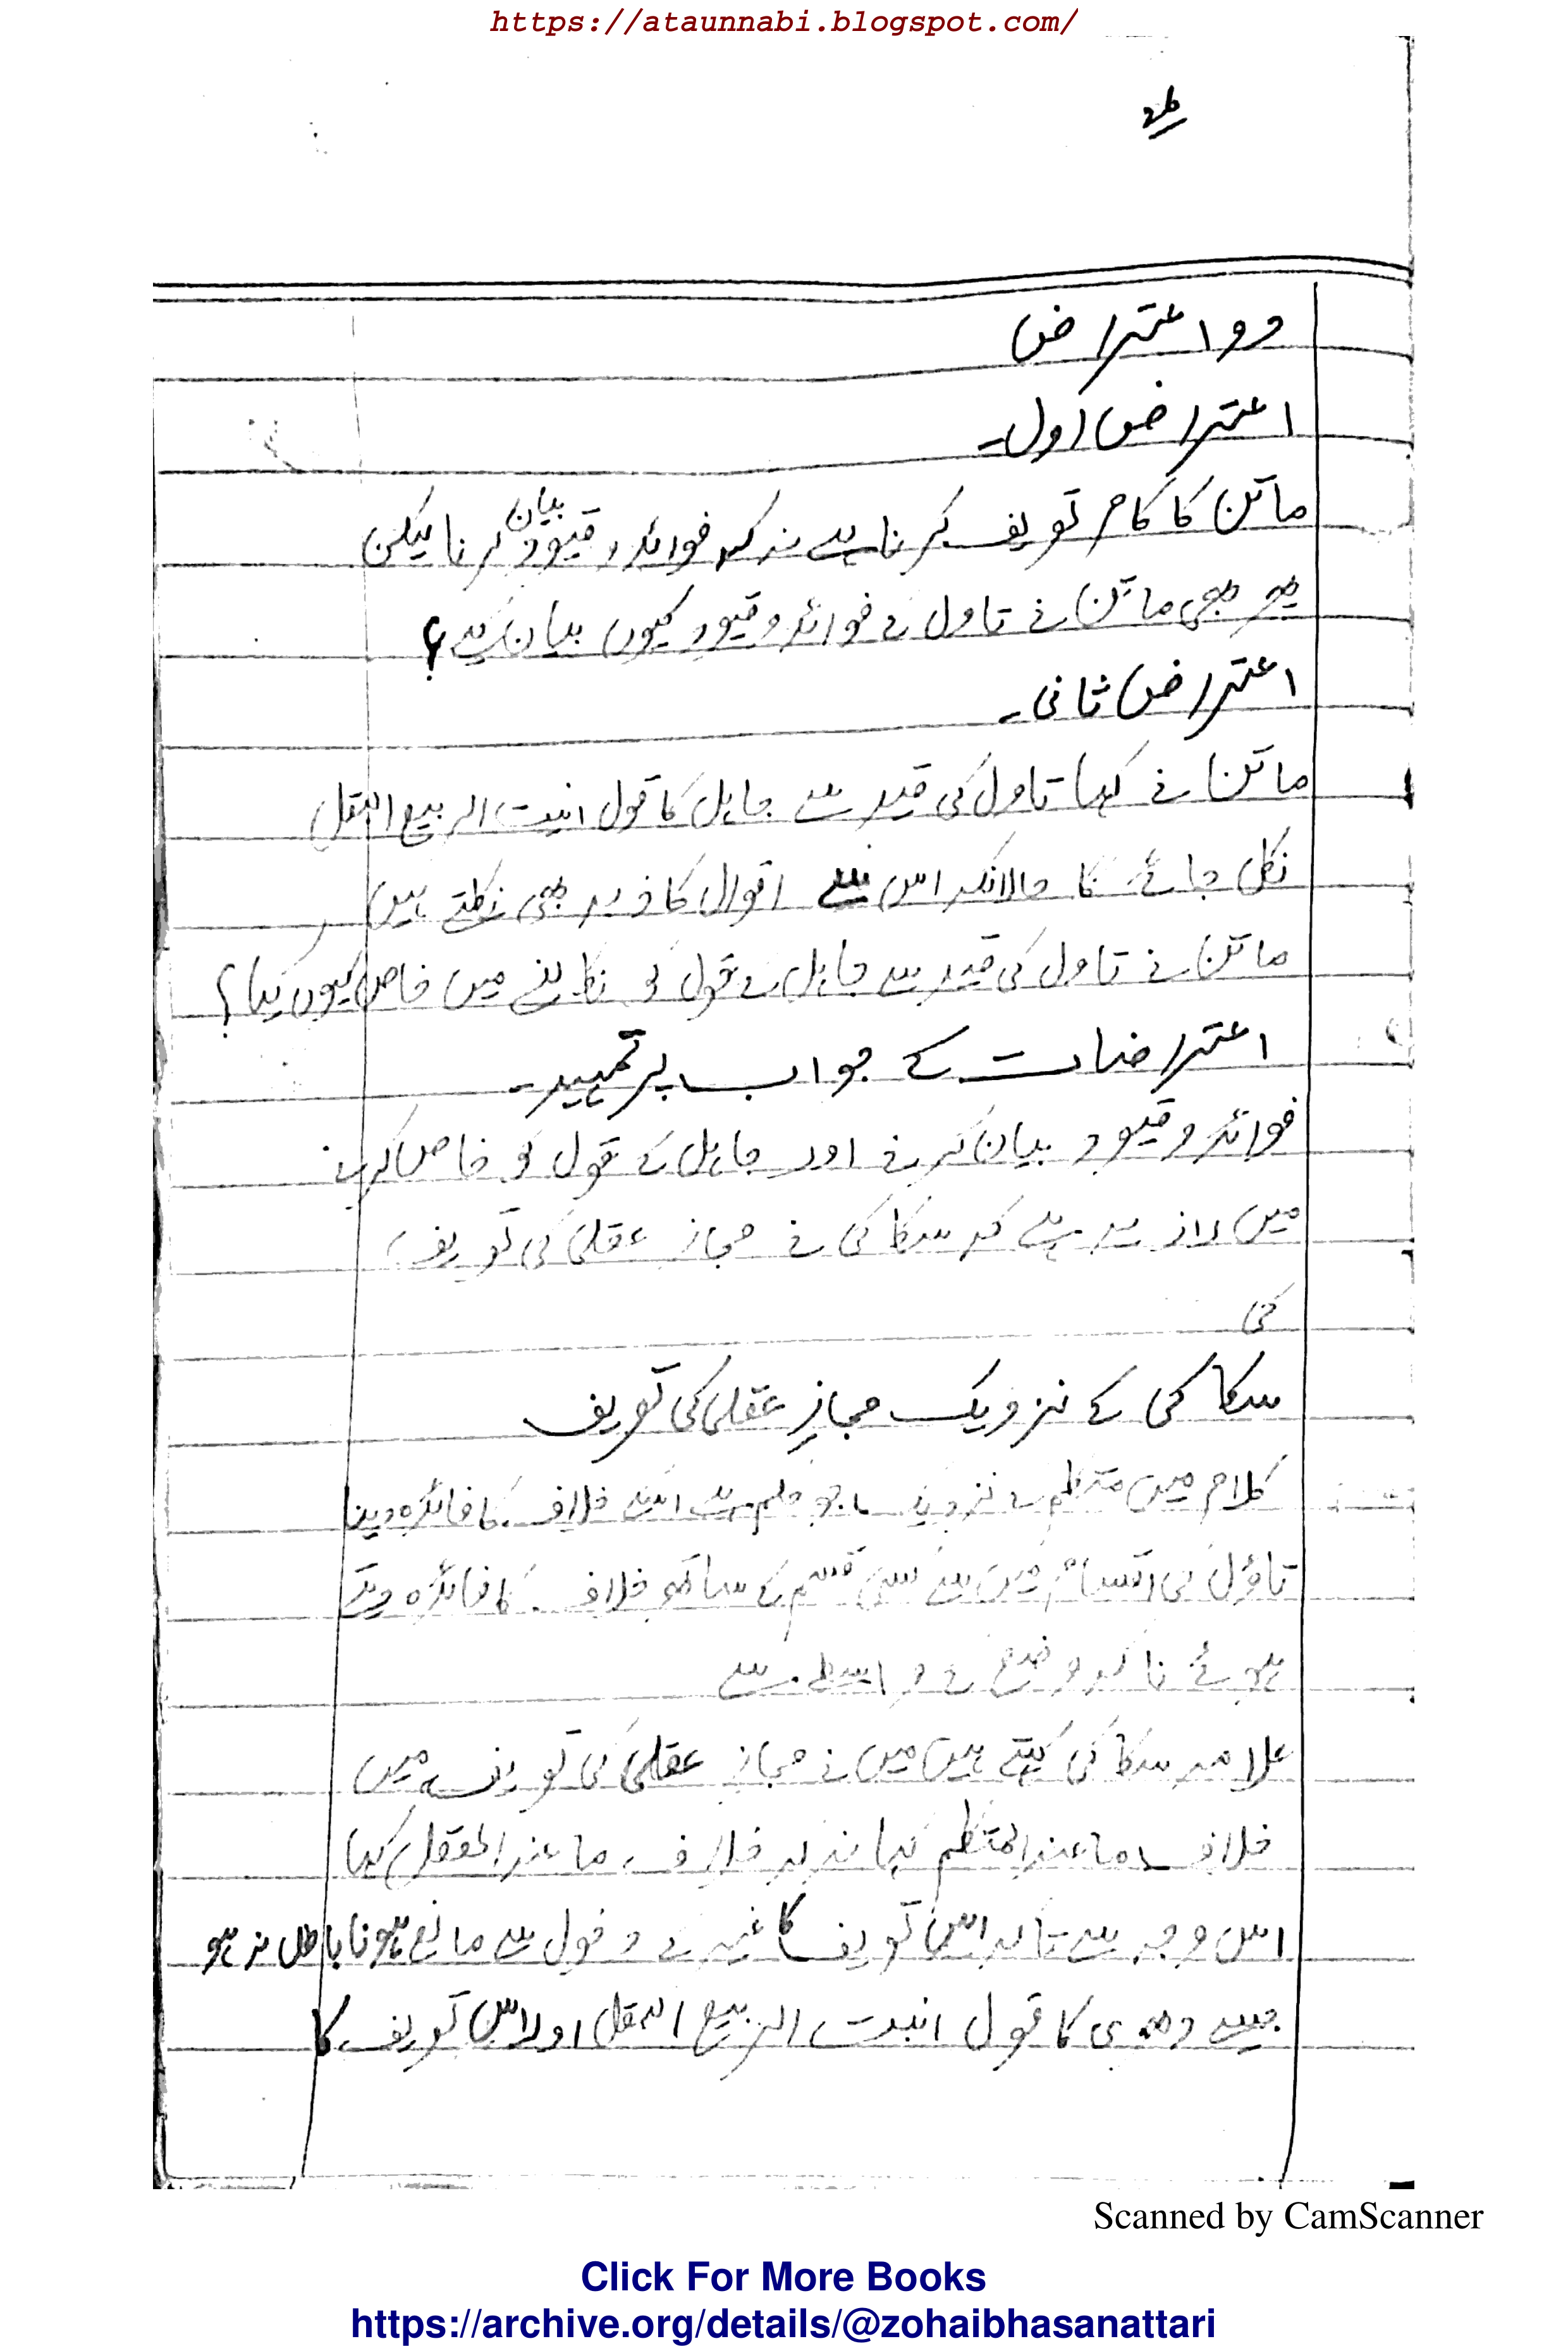 https://ataunnabi.blogspot.com/
دو اعتراض
اعتراض اول۔
ماتن کا کام تعریف کرنا ہے نہ کہ فوائد و قیود بیان کرنا لیکن
پھر بھی ماتن نے تاول کے فوائد و قیود کیوں بیان کیے؟
اعتراض ثانی۔
ماتن نے کہا تاول کی قید سے جاہل کا قول انبت الربیع البقل
نکل جائے گا حالانکہ اس سے اقوال کاذبہ بھی نکلتے ہیں
ماتن نے تاول کی قید سے جاہل کے قول کو نکالنے میں خاص کیوں کیا؟
اعتراضات کے جواب پر تمہید۔
فوائد و قیود بیان کرنے اور جاہل کے قول کو خاص کرنے
میں راز یہ ہے کہ سکاکی نے مجاز عقلی کی تعریف
کی
سکاکی کے نزدیک مجازِ عقلی کی تعریف
کلام میں متکلم کے نزدیک جو حکم ہے اسکے خلاف کا فائدہ دینا
تاؤل کی اقسام میں سے کسی قسم کے ساتھ خلاف کا فائدہ دیتے
ہوئے نا کہ وضع کے واسطے سے
علامہ سکاکی کہتے ہیں میں نے مجاز عقلی کی تعریف میں
خلاف ما عند المتکلم کہا نہ کہ خلاف ما عند العقل کہا
اس وجہ سے تاکہ اس تعریف کا غیر کے دخول سے مانع ہونا باطل نہ ہو
جیسے دھری کا قول انبت الربیع البقل اور اس تعریف کا
Scanned by CamScanner
Click For More Books
https://archive.org/details/@zohaibhasanattari